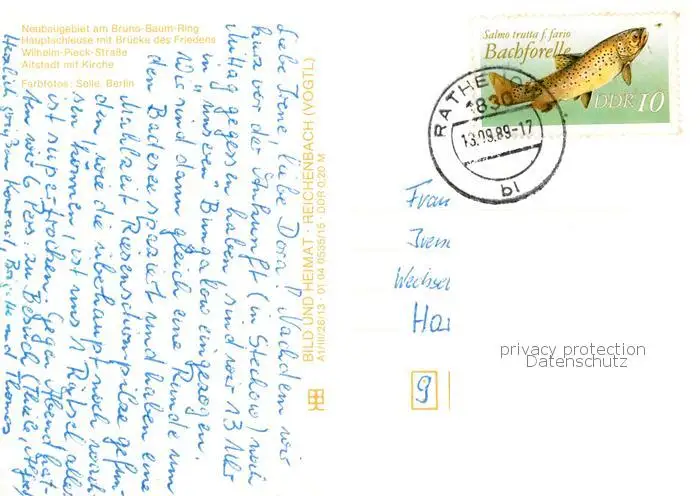 Neubaugebiet am Bruno-Baum-Ring
Hauptschleuse mit Brücke des Friedens
Wilhelm-Pieck-Straße
Altstadt mit Kirche
Farbfotos: Selle, Berlin
Liebe Irene, liebe Dora! Nachdem wir
kurz vor der Ankunft (in Stechow) noch
Mittag gegessen haben, sind wir 13 Uhr
in "unseren" Bungalow eingezogen.
Wir sind dann gleich eine Runde um
den Badesee spaziert und haben eine
Mahlzeit Riesenschirmpilze gefun-
den, wie die überhaupt noch wach-
sen können, ist uns 1 Rätsel, alles
ist supertrocken. Gegen Abend hat-
ten wir 6 Pers. zu Besuch
Herzlich grüßen Konrad, und Thomas
BILD UND HEIMAT REICHENBACH (VOGTL)
A1/III/26/13 01 04 0535/15 DDR 0,20 M
Salmo trutta f. fario
Bachforelle
DDR 10
RATHENOW
1830
13.09.89-17
bl
Frau
Irene
Wechsel
Ha
9
privacy protection
Datenschutz